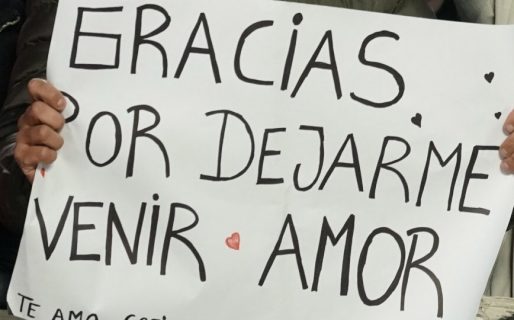 GRACIAS
POR DEJARME
VENIR AMOR
TE AMO